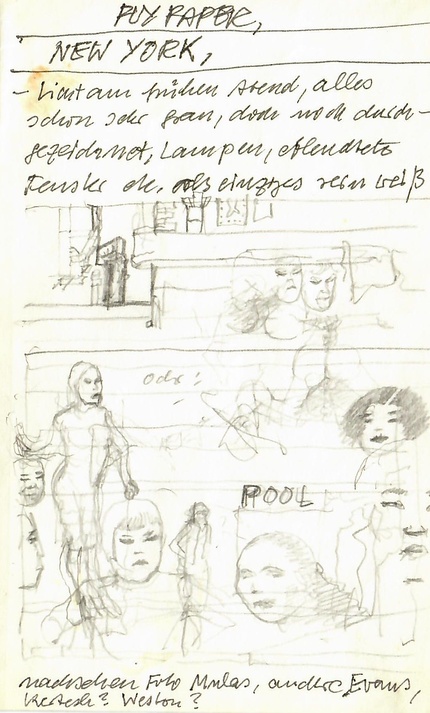 FLY PAPER,
NEW YORK,
– Licht am frühen Abend, alles
schon sehr grau, doch noch durch-
gezeichnet, Lampen,
Fenster etc. als einziges rein weiß
oder:
POOL
nachsehen Foto Mulas, andere Evans,
Kertesh? Weston?